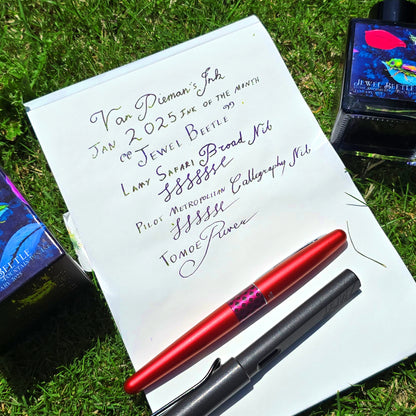 Van Dieman's Ink
Jan 2025 Ink of the Month
Jewel Beetle
Lamy Safari Broad Nib
Pilot Metropolitan Calligraphy Nib
Tomoe River
Jewel Beetle
Beetle